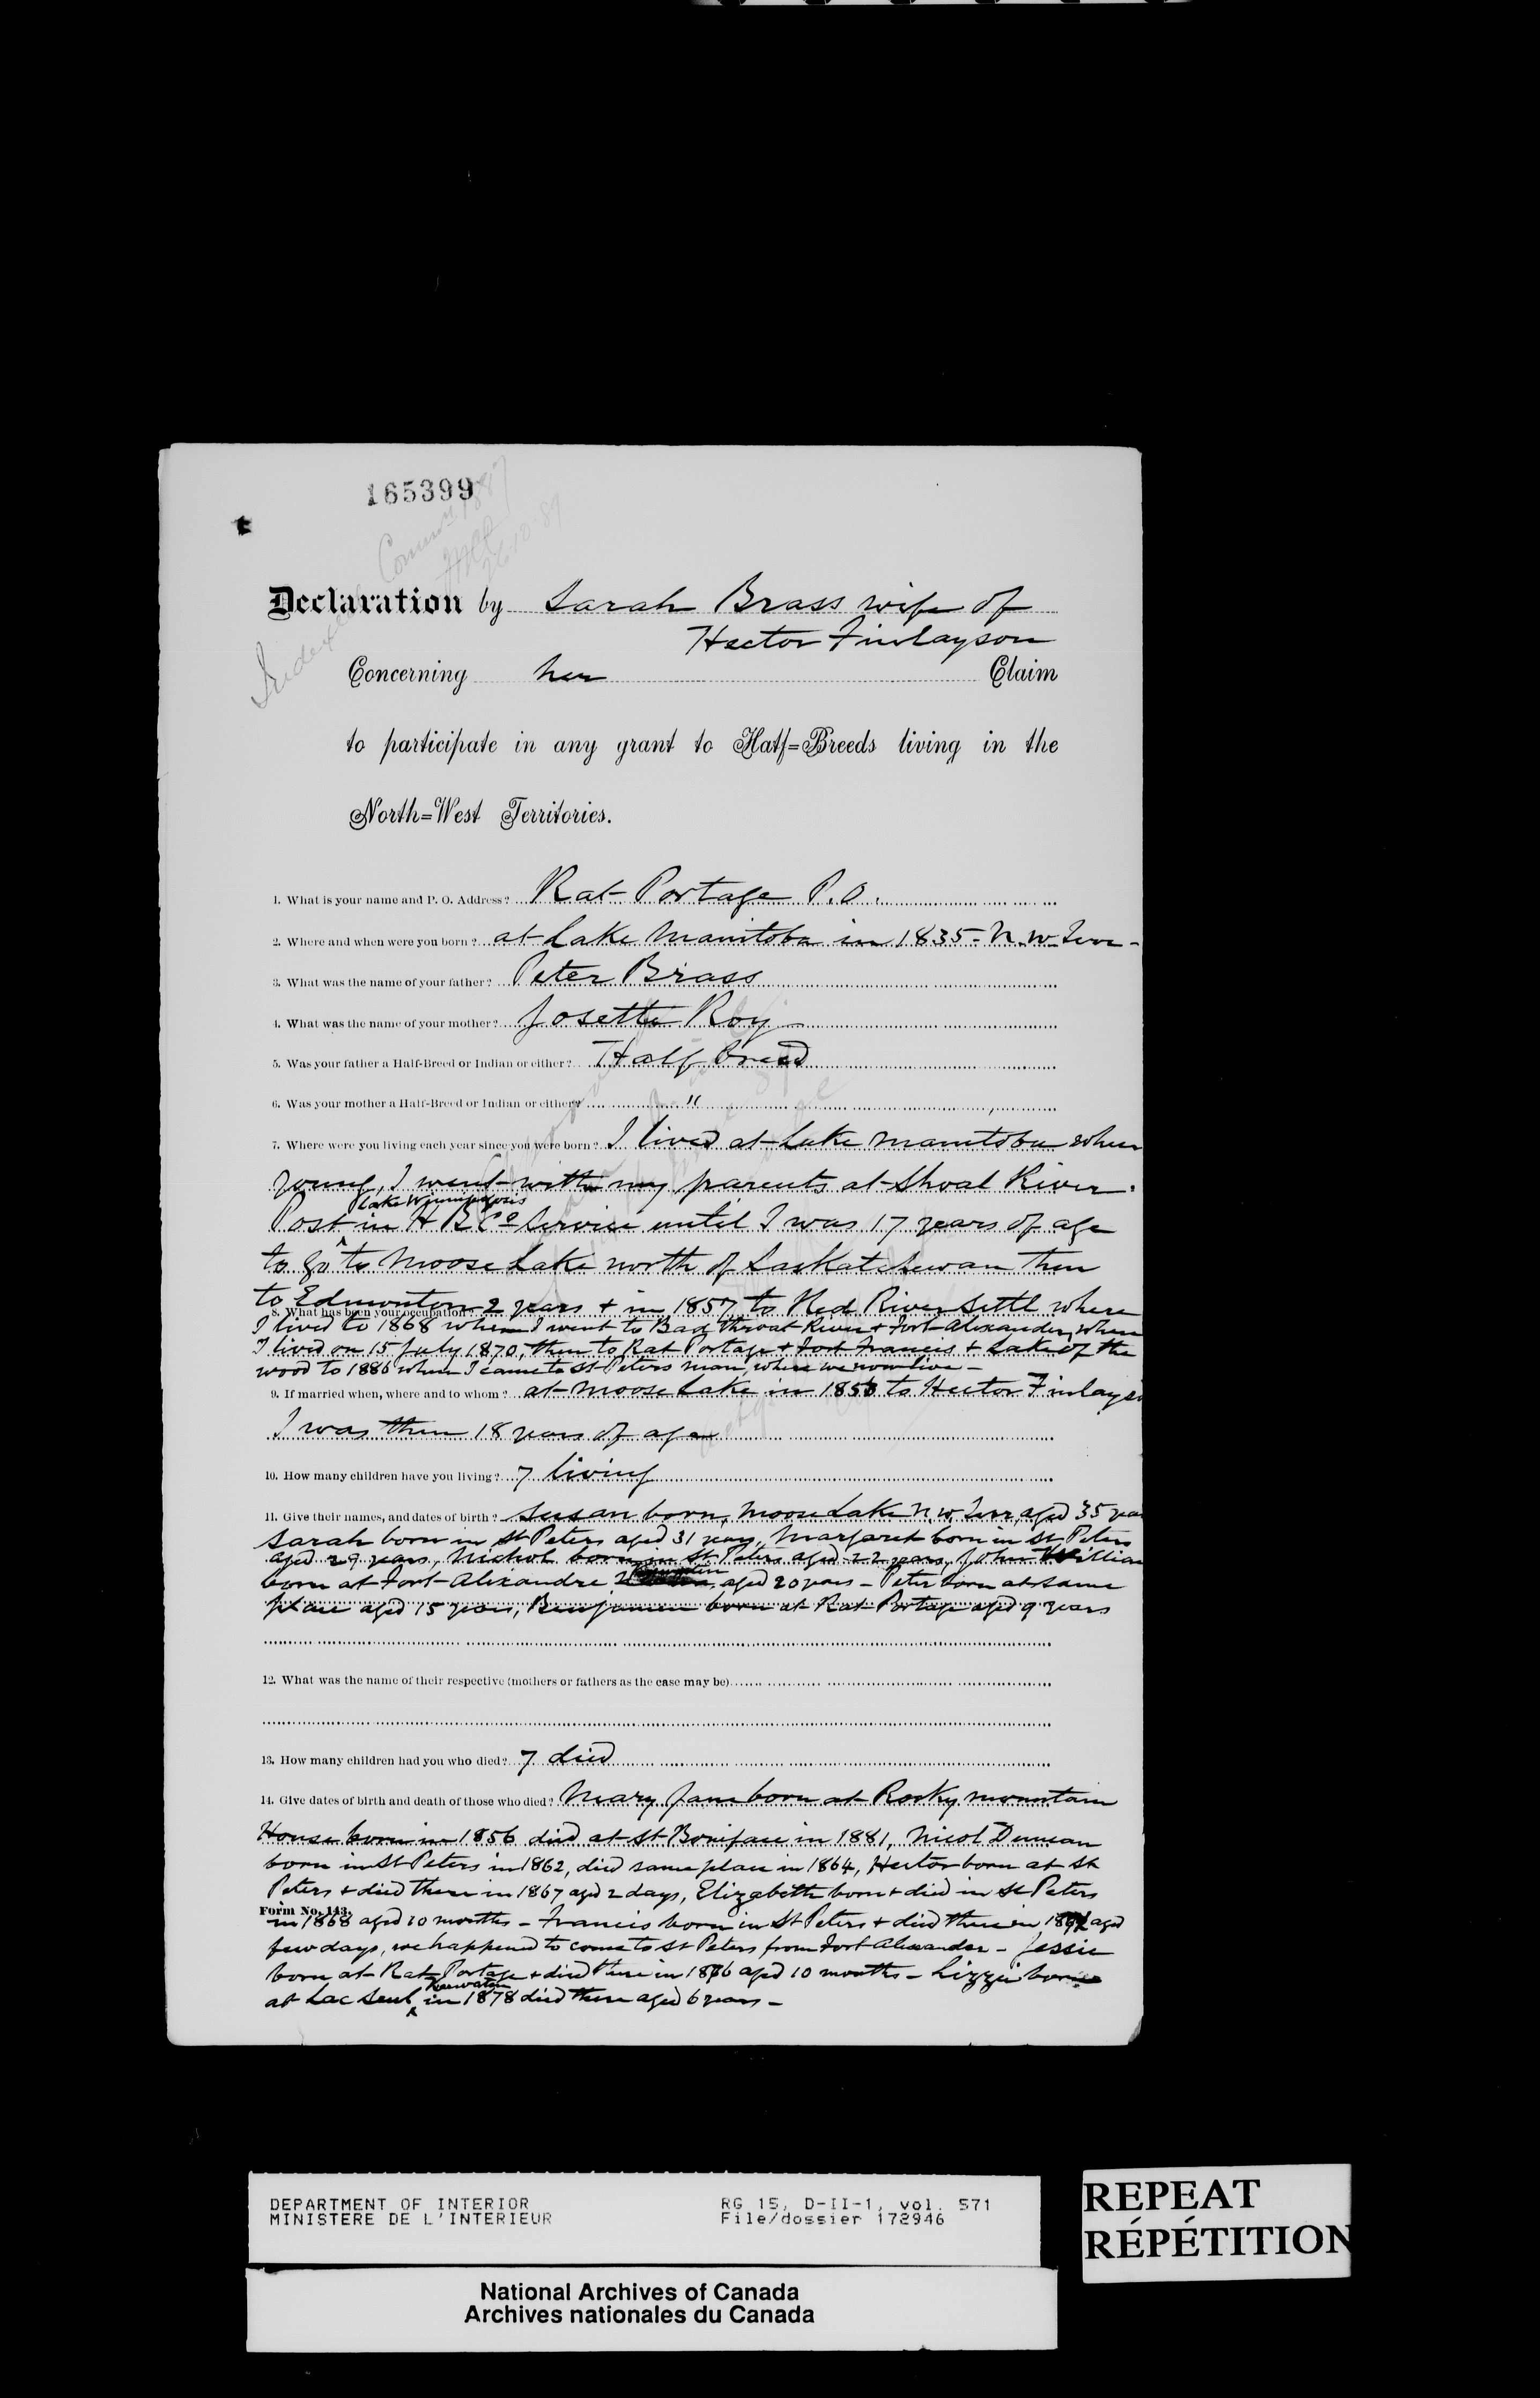 165399
Indexed Commn 1887
26.10.87
Declaration by Sarah Brass wife of
Hector Finlayson
Concerning her Claim
to participate in any grant to Half=Breeds living in the
North=West Territories.
1. What is your name and P. O. Address? Rat Portage P.O.
2. Where and when were you born? at Lake Manitoba in 1835 - N.W. Terr -
3. What was the name of your father? Peter Brass
4. What was the name of your mother? Josette Roy
5. Was your father a Half-Breed or Indian or either? Half Breed
6. Was your mother a Half-Breed or Indian or either? "
7. Where were you living each year since you were born? I lived at Lake Manitoba when
young, I went with my parents at Shoal River
Lake Winnipegosis
Post in H B Co Service until I was 17 years of age
to go to Moose Lake north of Saskatchewan then
to Edmonton 2 years + in 1857 to Red River Settl where
8. What has been your occupation?
I lived to 1868 when I went to Bad Throat River + Fort Alexander, where
I lived on 15 July 1870, then to Rat Portage + Fort Francis + Lake of the
wood to 1886 when I came to St Peters Man, where we now live -
9. If married when, where and to whom? at Moose Lake in 1853 to Hector Finlayso
I was then 18 years of age
10. How many children have you living? 7 living
11. Give their names, and dates of birth? Susan born, Moose Lake N.W. Terr, aged 35 yea
Sarah born in St Peters aged 31 years, Margaret born in St Peters
aged 29 years, Nichol born in St Peters aged 22 years, John William
born at Fort Alexandre aged 20 years - Peter born at same
place aged 15 years, Benjamin born at Rat Portage aged 9 years
12. What was the name of their respective (mothers or fathers as the case may be)
13. How many children had you who died? 7 died
14. Give dates of birth and death of those who died? Mary Jane born at Rocky mountain
House born in 1856 died at St Boniface in 1881, Nicol Duncan
born in St Peters in 1862, died same place in 1864, Hector born at St
Peters + died there in 1867 aged 2 days, Elizabeth born + died in St Peters
Form No. 143.
in 1868 aged 10 months - Francis born in St Peters + died there in aged
few days, we happened to come to St Peters from Fort Alexander - Jessie
born at Rat Portage + died there in 1876 aged 10 months - Lizzie born
Keewatin
at Lac Seul in 1878 died there aged 6 years -
DEPARTMENT OF INTERIOR
MINISTERE DE L'INTERIEUR
RG 15, D-II-1, vol. 571
File/dossier 172946
REPEAT
RÉPÉTITION
National Archives of Canada
Archives nationales du Canada